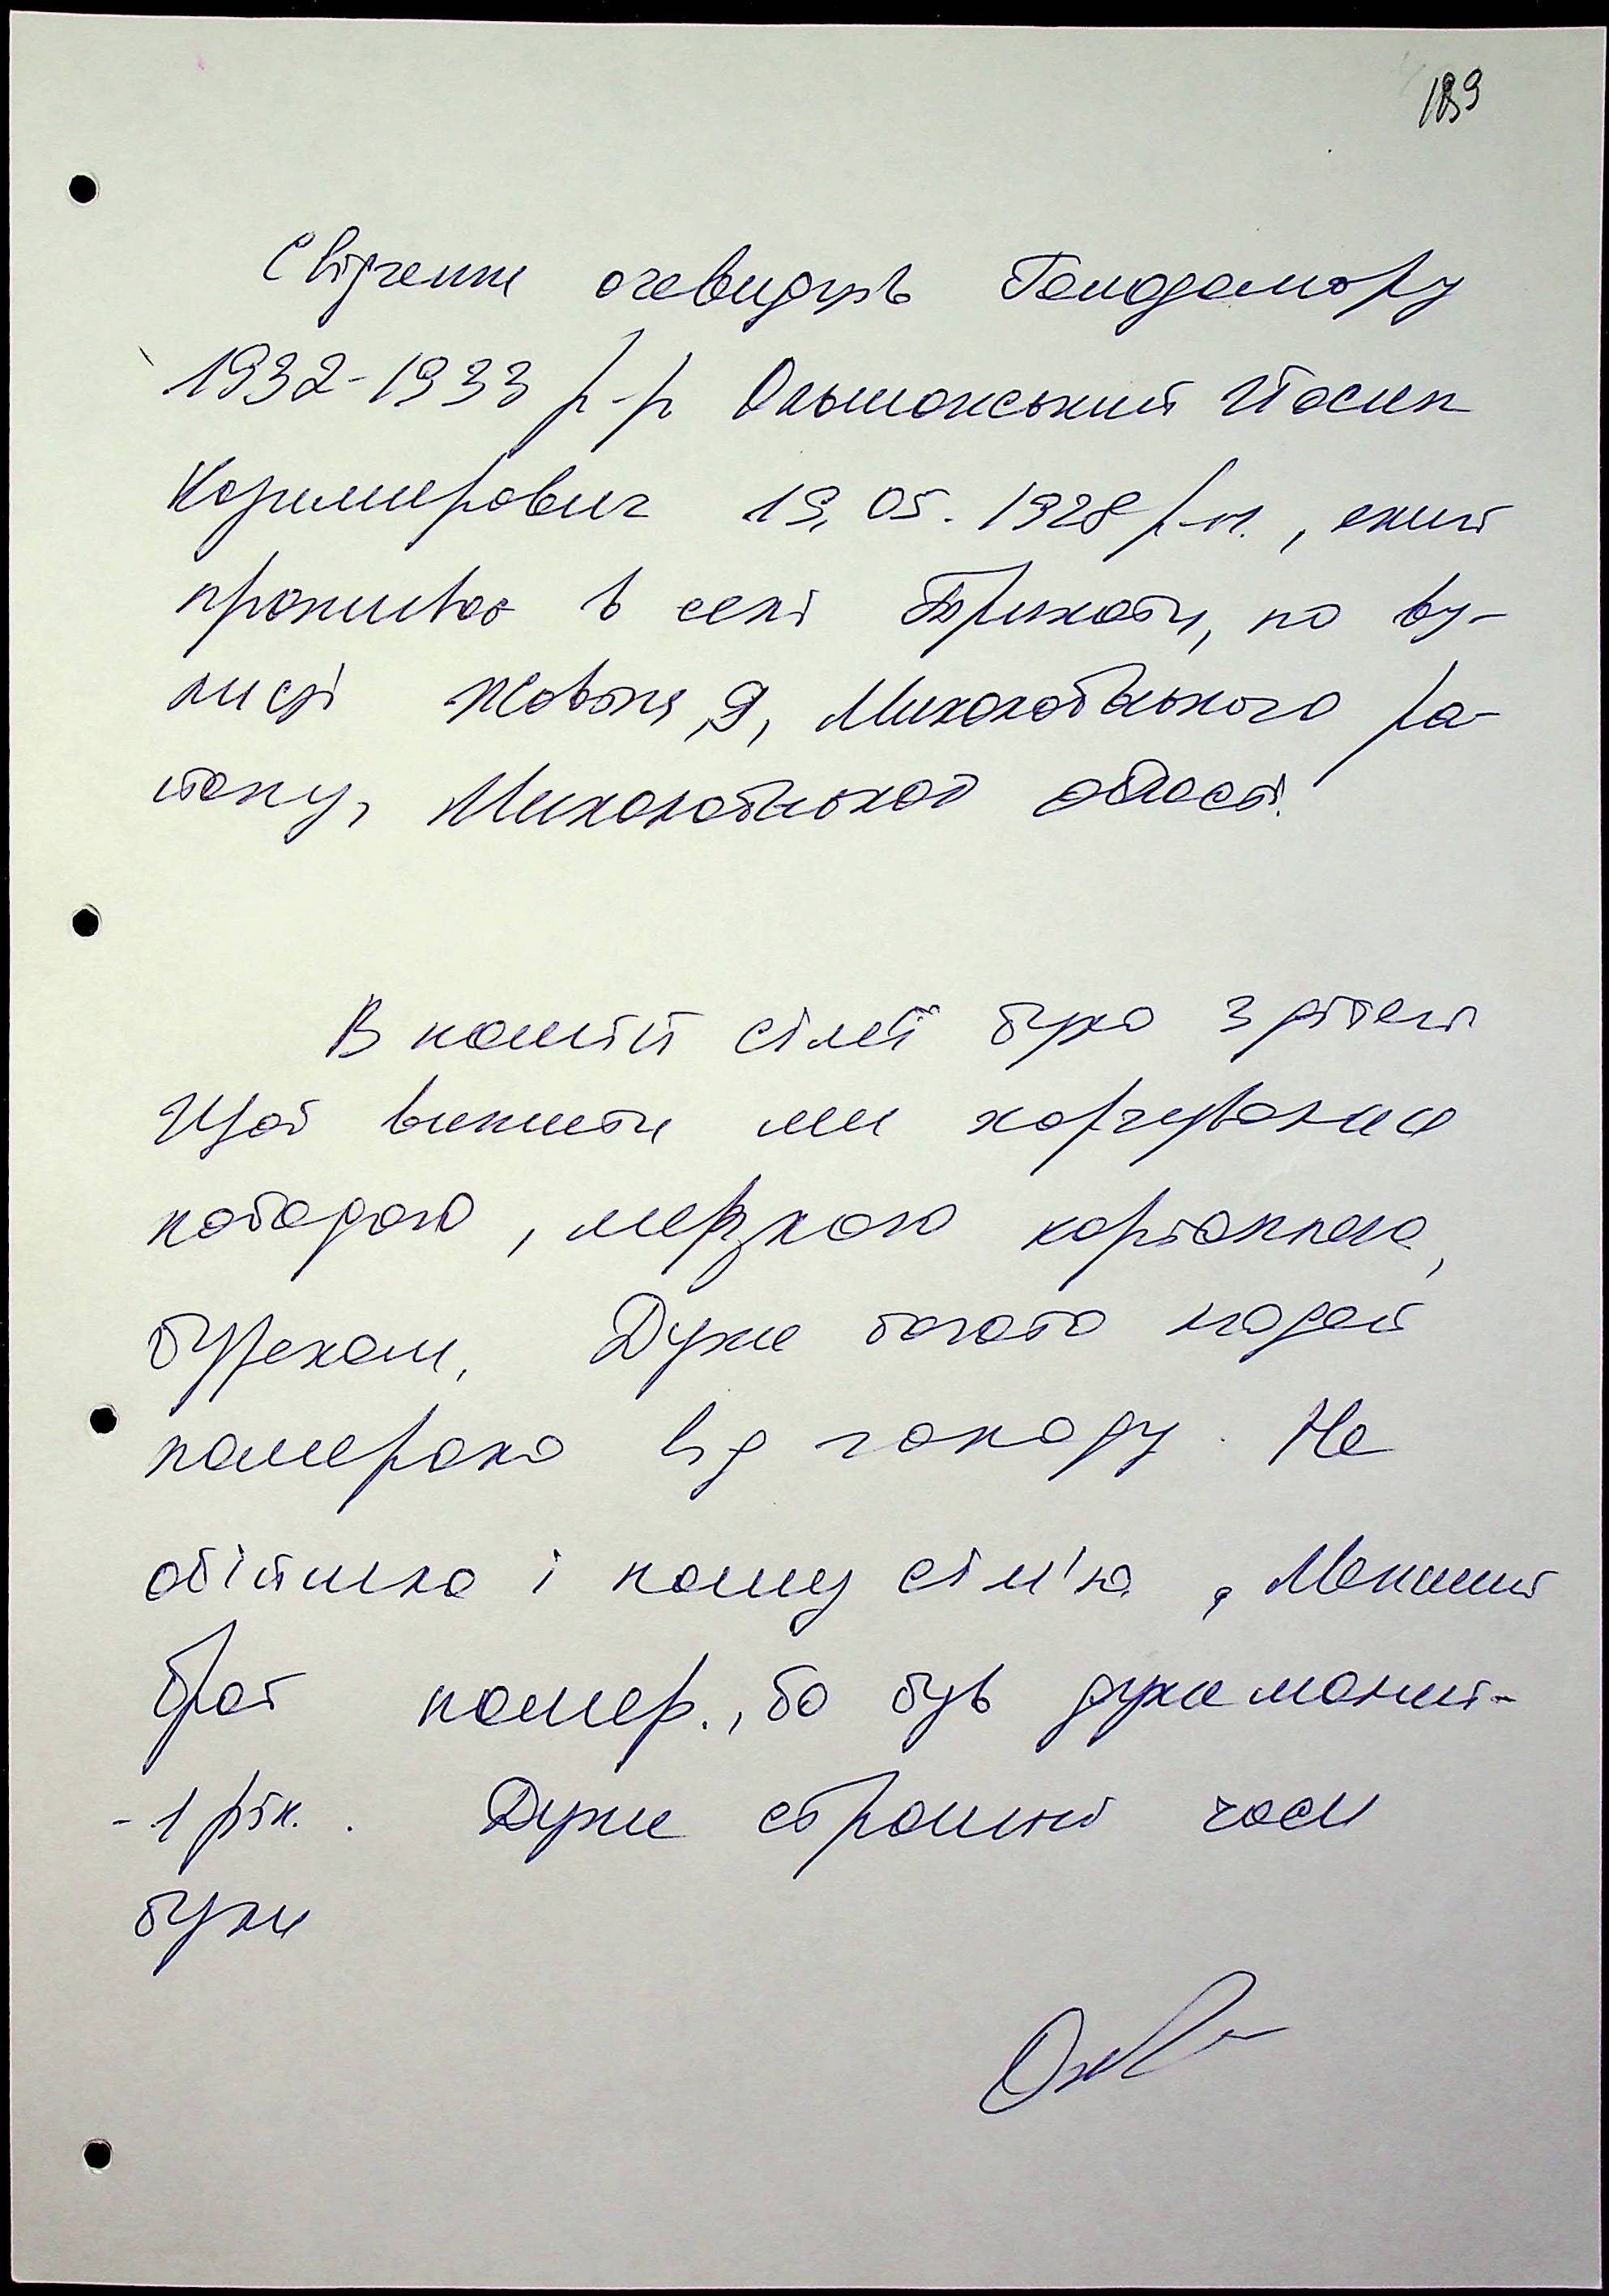 189
Свідчення очевидців Голодомору
1932-1933 р-р Ольшанський Йосип
Казимирович 19.05.1928 р-н., який
проживає в селі Трихати, по ву-
лиці Жовтня, 9, Миколаївського ра-
йону, Миколаївської області.
В нашій сім'ї було 3 дітей
Щоб вижити ми харчувалися
лободою, мерзлою картоплею,
буряком. Дуже багато людей
померало від голоду. Не
обійшло і нашу сім'ю, Менший
брат помер., бо був дуже малий-
-1 рік. . Дуже страшні часи
були